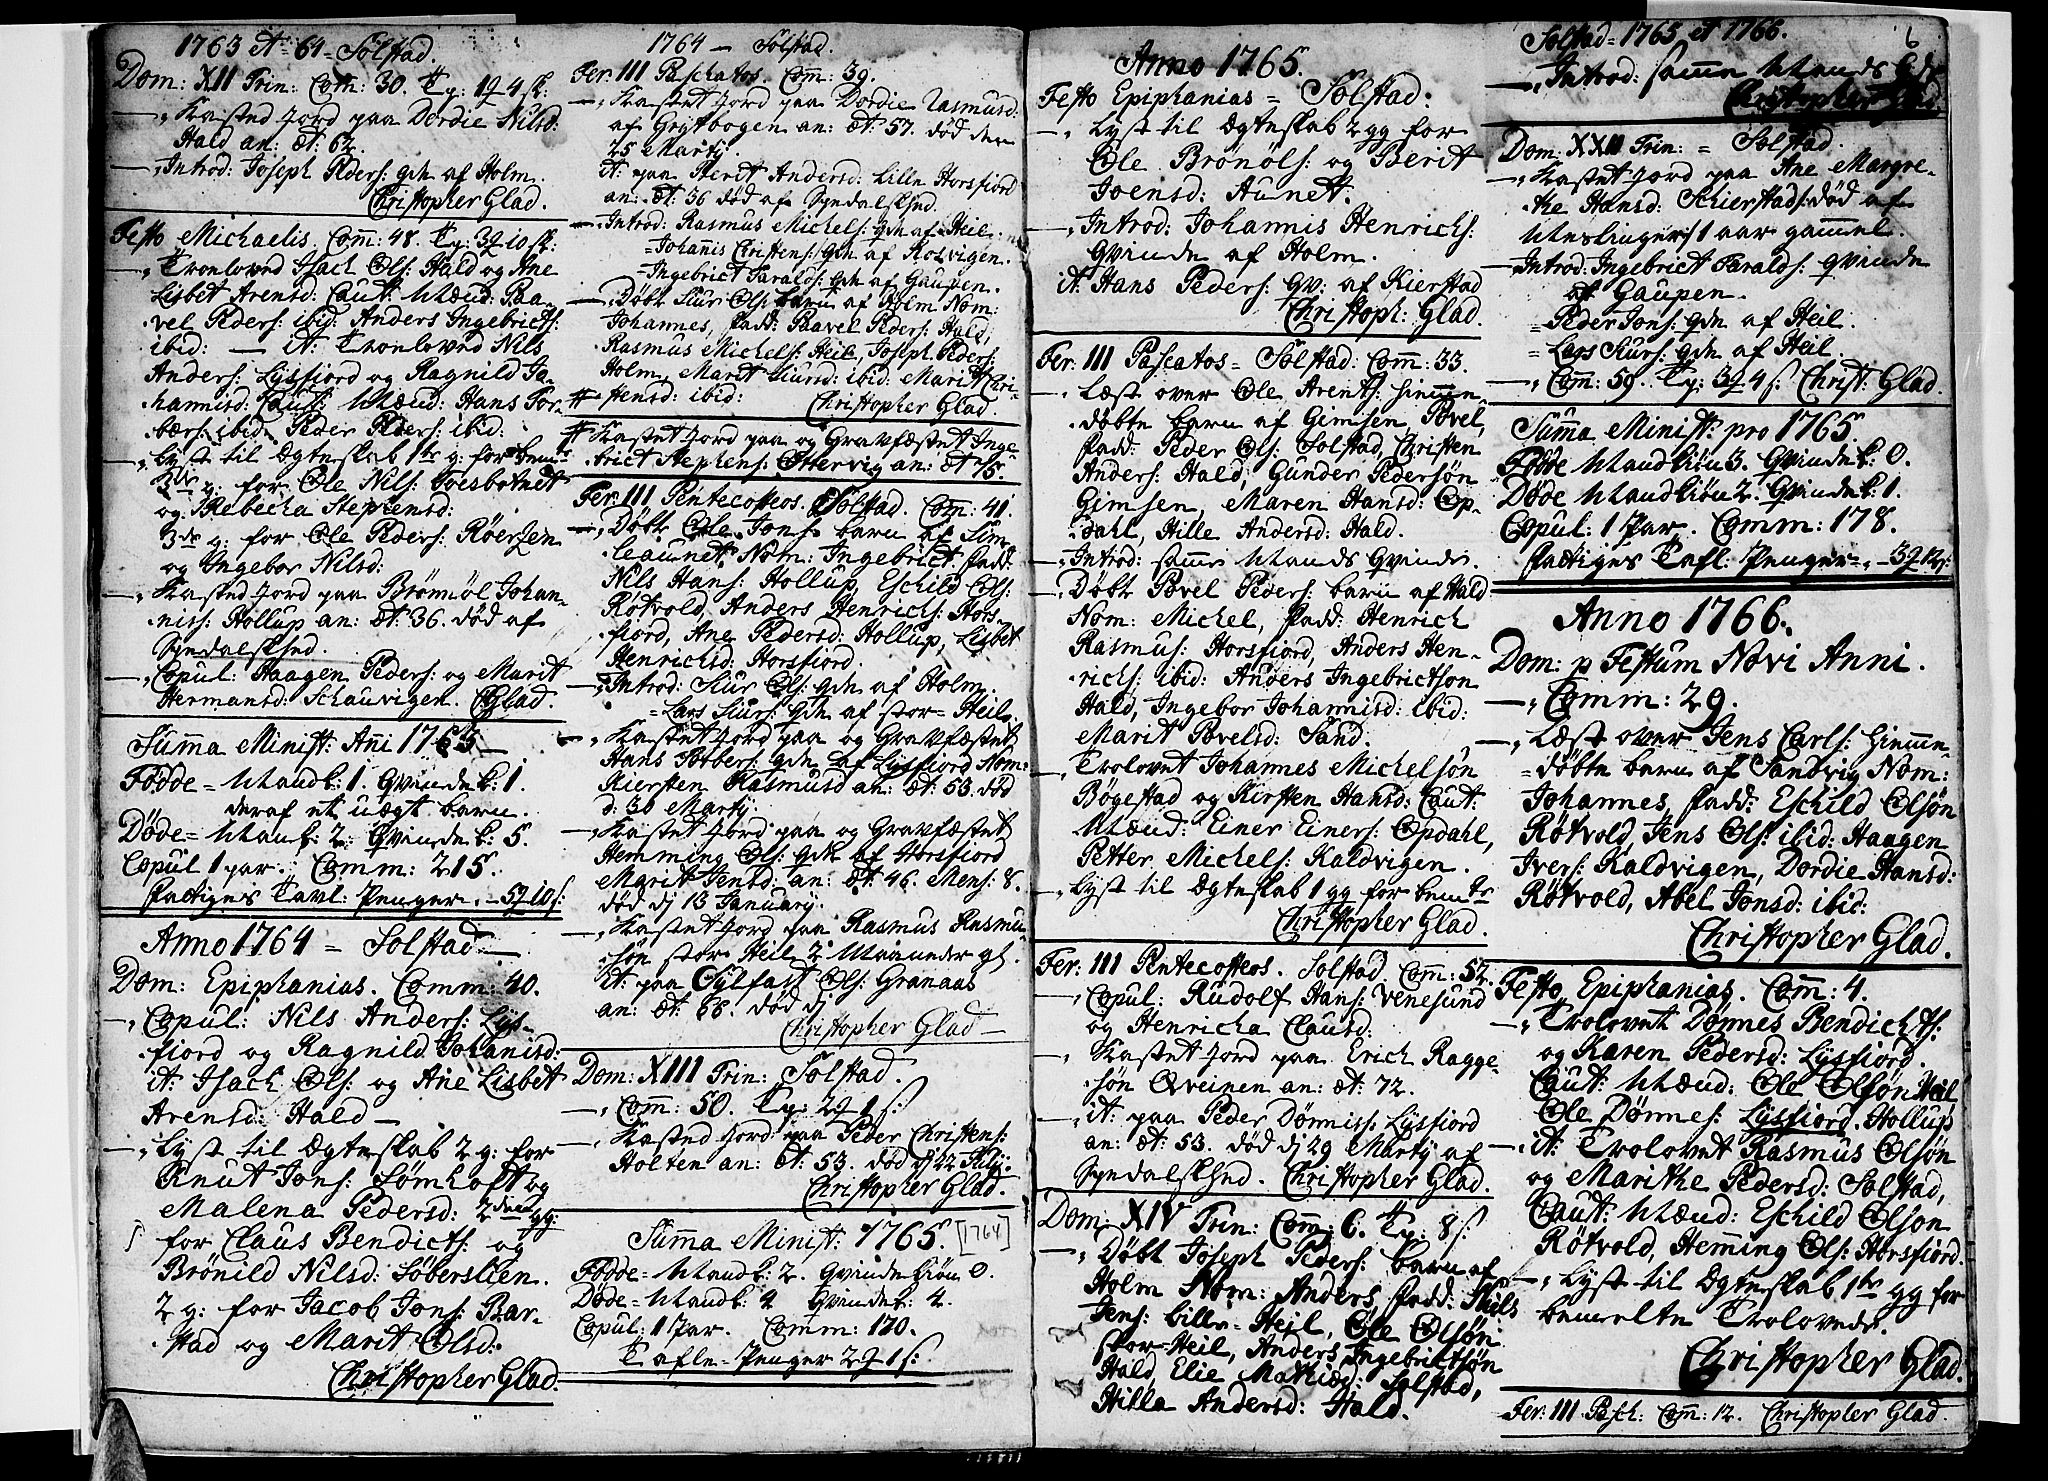 1763 et 64 = Solstad.
Dom: XII Trin: Com: 30. Tp: 1 4 sk:
— Kasted Jord paa Dordie Nilsd:
Hald an: æt: 62.
— Introd: Joseph Peders: qdn af Holm.
Christopher Glad.
Festo Michaelis. Com: 48. Tp: 3 10 sk:
— Tronloved Isach Ols: Hald og Ane
Lisbet Arensd: Caut: Mænd: Paa-
vel Peders: ibid: Anders Ingebricts:
ibid: — it: Tronloved Nils
Anders: Lysfiord og Ragnild Jo-
hannisd: Caut: Mænd: Hans Tor-
bers: ibid: Peder Peders: ibid:
— Lyst til Ægteskab 1te g: for bem:te
g: for Ole Nils: Toesbotnet
og Rebecha Stephensd:
3de g: for Ole Peders: Röersen
og Ingebor Nilsd:
— Kasted Jord paa Brönnöl Johan-
niss: Hollup an: æt: 36. död af
Syndalsk:
— Copul: Haagen Peders: og Marit
Hermansd: Schauvigen. CGlad.
Summa Minist: Ani 1763 —
Födde = Mandk: 1. Qvindek: 1.
deraf et uægt barn.
Döde = Mandk: 2: Qvindek: 5.
Copul 1 par. Comm: 215.
Fattiges Tavl: Penger — 5 10 s:
Anno 1764 = Solstad —
Dom: Epiphanias. Comm: 40.
— Copul: Nils Anders: Lys-
fiord og Ragnild Johanisd:
it: Isach Ols: og Ane Lisbet
Arensd: Hald —
— Lyst til Ægteskab 2 g: for
Knut Jons: Sömhoft og
Malena Pedersd: 2den gg:
for Claus Bendicts: og
Brönild Nilsd: Söberstien.
2 g: for Jacob Jons: Bar-
stad og Marit Olsd:
Christopher Glad.
1764 — Solstad.
Fer: III Paschatos. Comm: 39.
— Kastet Jord paa Dordie Rasmusd:
af Grytbogen an: æt: 57. död den
25 Martj.
it: paa Berit Andersd: Lille Horsfiord
an: æt: 36 död af Syndalsk:
— Introd: Rasmus Michels: qdn af Heil.
= Johannis Christens: qdn af Rosvigen.
= Ingebrict Taralds: qdn af Gaupen.
— Döbt Siur Ols: barn af Holm Nom:
Johannes, fadd: Paavel Peders: Hald,
Rasmus Michels: Heil, Joseph Peders:
Holm, Marit Siursd: ibid: Marit Chri-
stensd: ibid: Christopher Glad.
Kastet Jord paa og Gravfæstet Inge-
brict Stephens: Ottervig an: æt 75.
Fer: III Pentecosteos. Solstad. Comm: 41.
— Döbt Ole Jons: barn af Sim-
leaunet, Nom: Ingebrict. fadd:
Nils Hans: Hollup, Eschild Ols:
Rötvold, Anders Henrichs: Hors-
fiord, Ane Pedersd: Hollup, Lisbet
Henrichsd: Horsfiord.
— Introd: Siur Ols: qdn af Holm.
= Lars Siurs: qdn af stor = Heil.
— Kastet Jord paa og Gravfæstet
Hans Torbers: qdn af Lysfiord Nom:
Kiersten Rasmusd an: æt: 53. död
d: 30 Martj.
— Kastet Jord paa og Gravfæstet
Hemming Ols: qdn af Horsfiord
Marit Jensd: an: æt: 46. Mens: 8.
död dj 13 Januarj.
— Kastet Jord paa Rasmus Rasmu-
sön stor Heil 2 Maaneder gl.
it: paa Sylfast Ols: Granaas
an: æt: 66. död dj
Christopher Glad —
Dom: XIII Trin: Solstad.
— Comm: 50. Tp: 2 1 s:
— Kasted Jord paa Peder Christens:
Holten an: æt: 53. död dj 22 Julj:
Christopher Glad.
Summa Minist: 1765. [1764]
Födde = Mandk: 2. Qvindekiön 0.
Döde = Mandk: 4 Qvindek: 4.
Copul: 1 Par. Comm: 170.
Tafle = Penger 2 1 s:
Anno 1765.
Festo Epiphanias = Solstad:
— Lyst til Ægteskab 2 gg for
Ole Brönöls: og Berit
Joensd: Aunet.
— Introd: Johannis Henrichs:
Qvinde af Holm.
it: Hans Peders: qv: af Kierstad
Christoph: Glad.
Fer: III Pascatos = Solstad. Comm: 33.
— Læst over Ole Arents: hiemme-
döbte barn af Gimsen, Povel,
fadd: Peder Ols: Solstad, Christen
Anders: Hald, Gunder Pedersön
Gimsen, Maren Hansd: Op-
dahl, Hille Andersd: Hald.
— Introd: samme Mands Qvinde.
— Döbt Povel Peders: barn af Hald
Nom: Michel, fadd: Henrich
Rasmus: Horsfiord, Anders Hen-
richs: ibid: Anders Ingebrictson
Hald, Ingebor Johannisd: ibid:
Marit Povelsd: Sand.
— Trolovet Johannes Michelsön
Bögestad og Kirsten Hansd: Caut:
Mænd: Einer Einers: Opdahl,
Petter Michels: Kaldvigen.
— Lyst til Ægteskab 1 gg for bem:te
Christopher Glad.
Fer: III Pentecosteos. Solstad. Comm: 57.
— Copul: Rudolf Hans: Venesund
og Henricha Clausd:
— Kastet Jord paa Erich Ragge-
sön Qveinen an: æt: 72.
— it: paa Peder Dönniss: Lysfiord
an: æt: 53. död dj 29 Martj af
Syndalsk: Christopher Glad.
Dom: XIV Trin: Comm: 6. Tp: 8 s:
— Döbt Joseph Peders: barn af
Holm Nom: Anders, fadd: Niels
Jens: Lille-Heil, Ole Olsön
stor-Heil, Anders Ingebrictsön
Hald, Elie Mathiæd: Solstad,
Hilla Andersd: Hald.
Solstad = 1765 et 1766.
6
— Introd: samme Mands qdn
Christopher Glad.
Dom: XXII Trin: = Solstad.
— Kastet Jord paa Ane Margre-
the Hansd: Schierstad död af
1 aar gammel.
— Introd: Ingebrict Taralds: qvinde
af Gaupen.
= Peder Jons: qdn af Heil.
= Lars Siurs: qdn af Heil.
— Comm: 59. Tp: 3 4 s: Christ: Glad.
Summa Minist: pro 1765.
Födde Mandkiön 3. Qvindek: 0.
Döde Mandkiön 2. Qvindek: 1.
Copul: 1 Par. Comm: 178.
Fattiges Tafl: Penger — 3 12 s:
Anno 1766.
Dom: p Festum Novi Anni.
— Comm: 29.
— Læst over Jens Carls: hiemme-
döbte barn af Sandvig Nom:
Johannes, fadd: Eschild Olsön
Rötvold, Jens Ols: ibid: Haagen
Ivers: Kaldvigen, Dordie Hansd:
Rötvold, Abel Jonsd: ibid:
Christopher Glad.
Festo Epiphanias. Comm: 4.
— Trolovet Dönnes Bendichts:
og Karen Pedersd: Lysfiord.
Caut: Mænd: Ole Olsön Heil
Ole Dönnes: Lysfiord. Hollup
— it: Trolovet Rasmus Olsön
og Marithe Pedersd: Solstad,
Caut: Mænd: Eschild Olson
Rötvold, Hemming Ols: Horsfiord.
— Lyst til Ægteskab 1te gg for
bemelte Trolovede.
Christopher Glad.
Fer: III Pasch: Comm: 12. Christopher Glad.